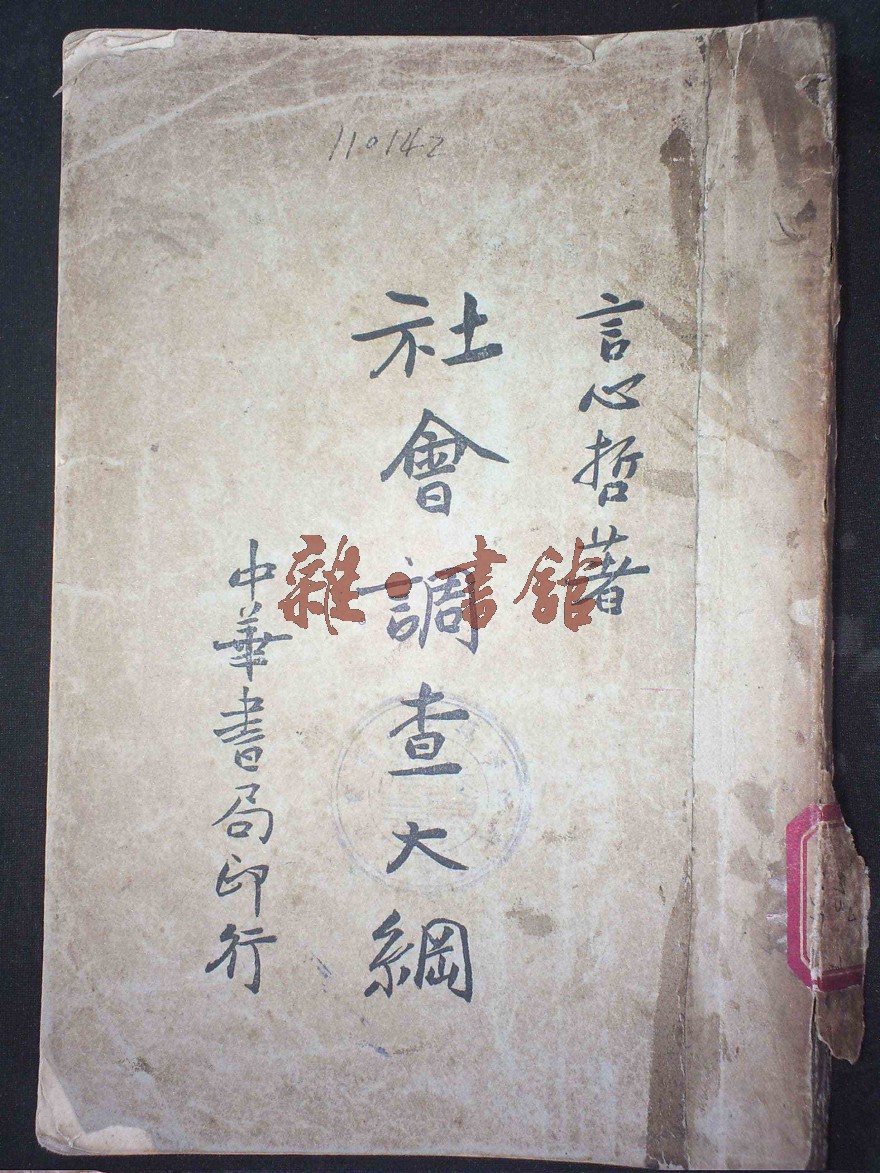 110142
言心哲著
社會調查大綱
中華書局印行
雜·書館